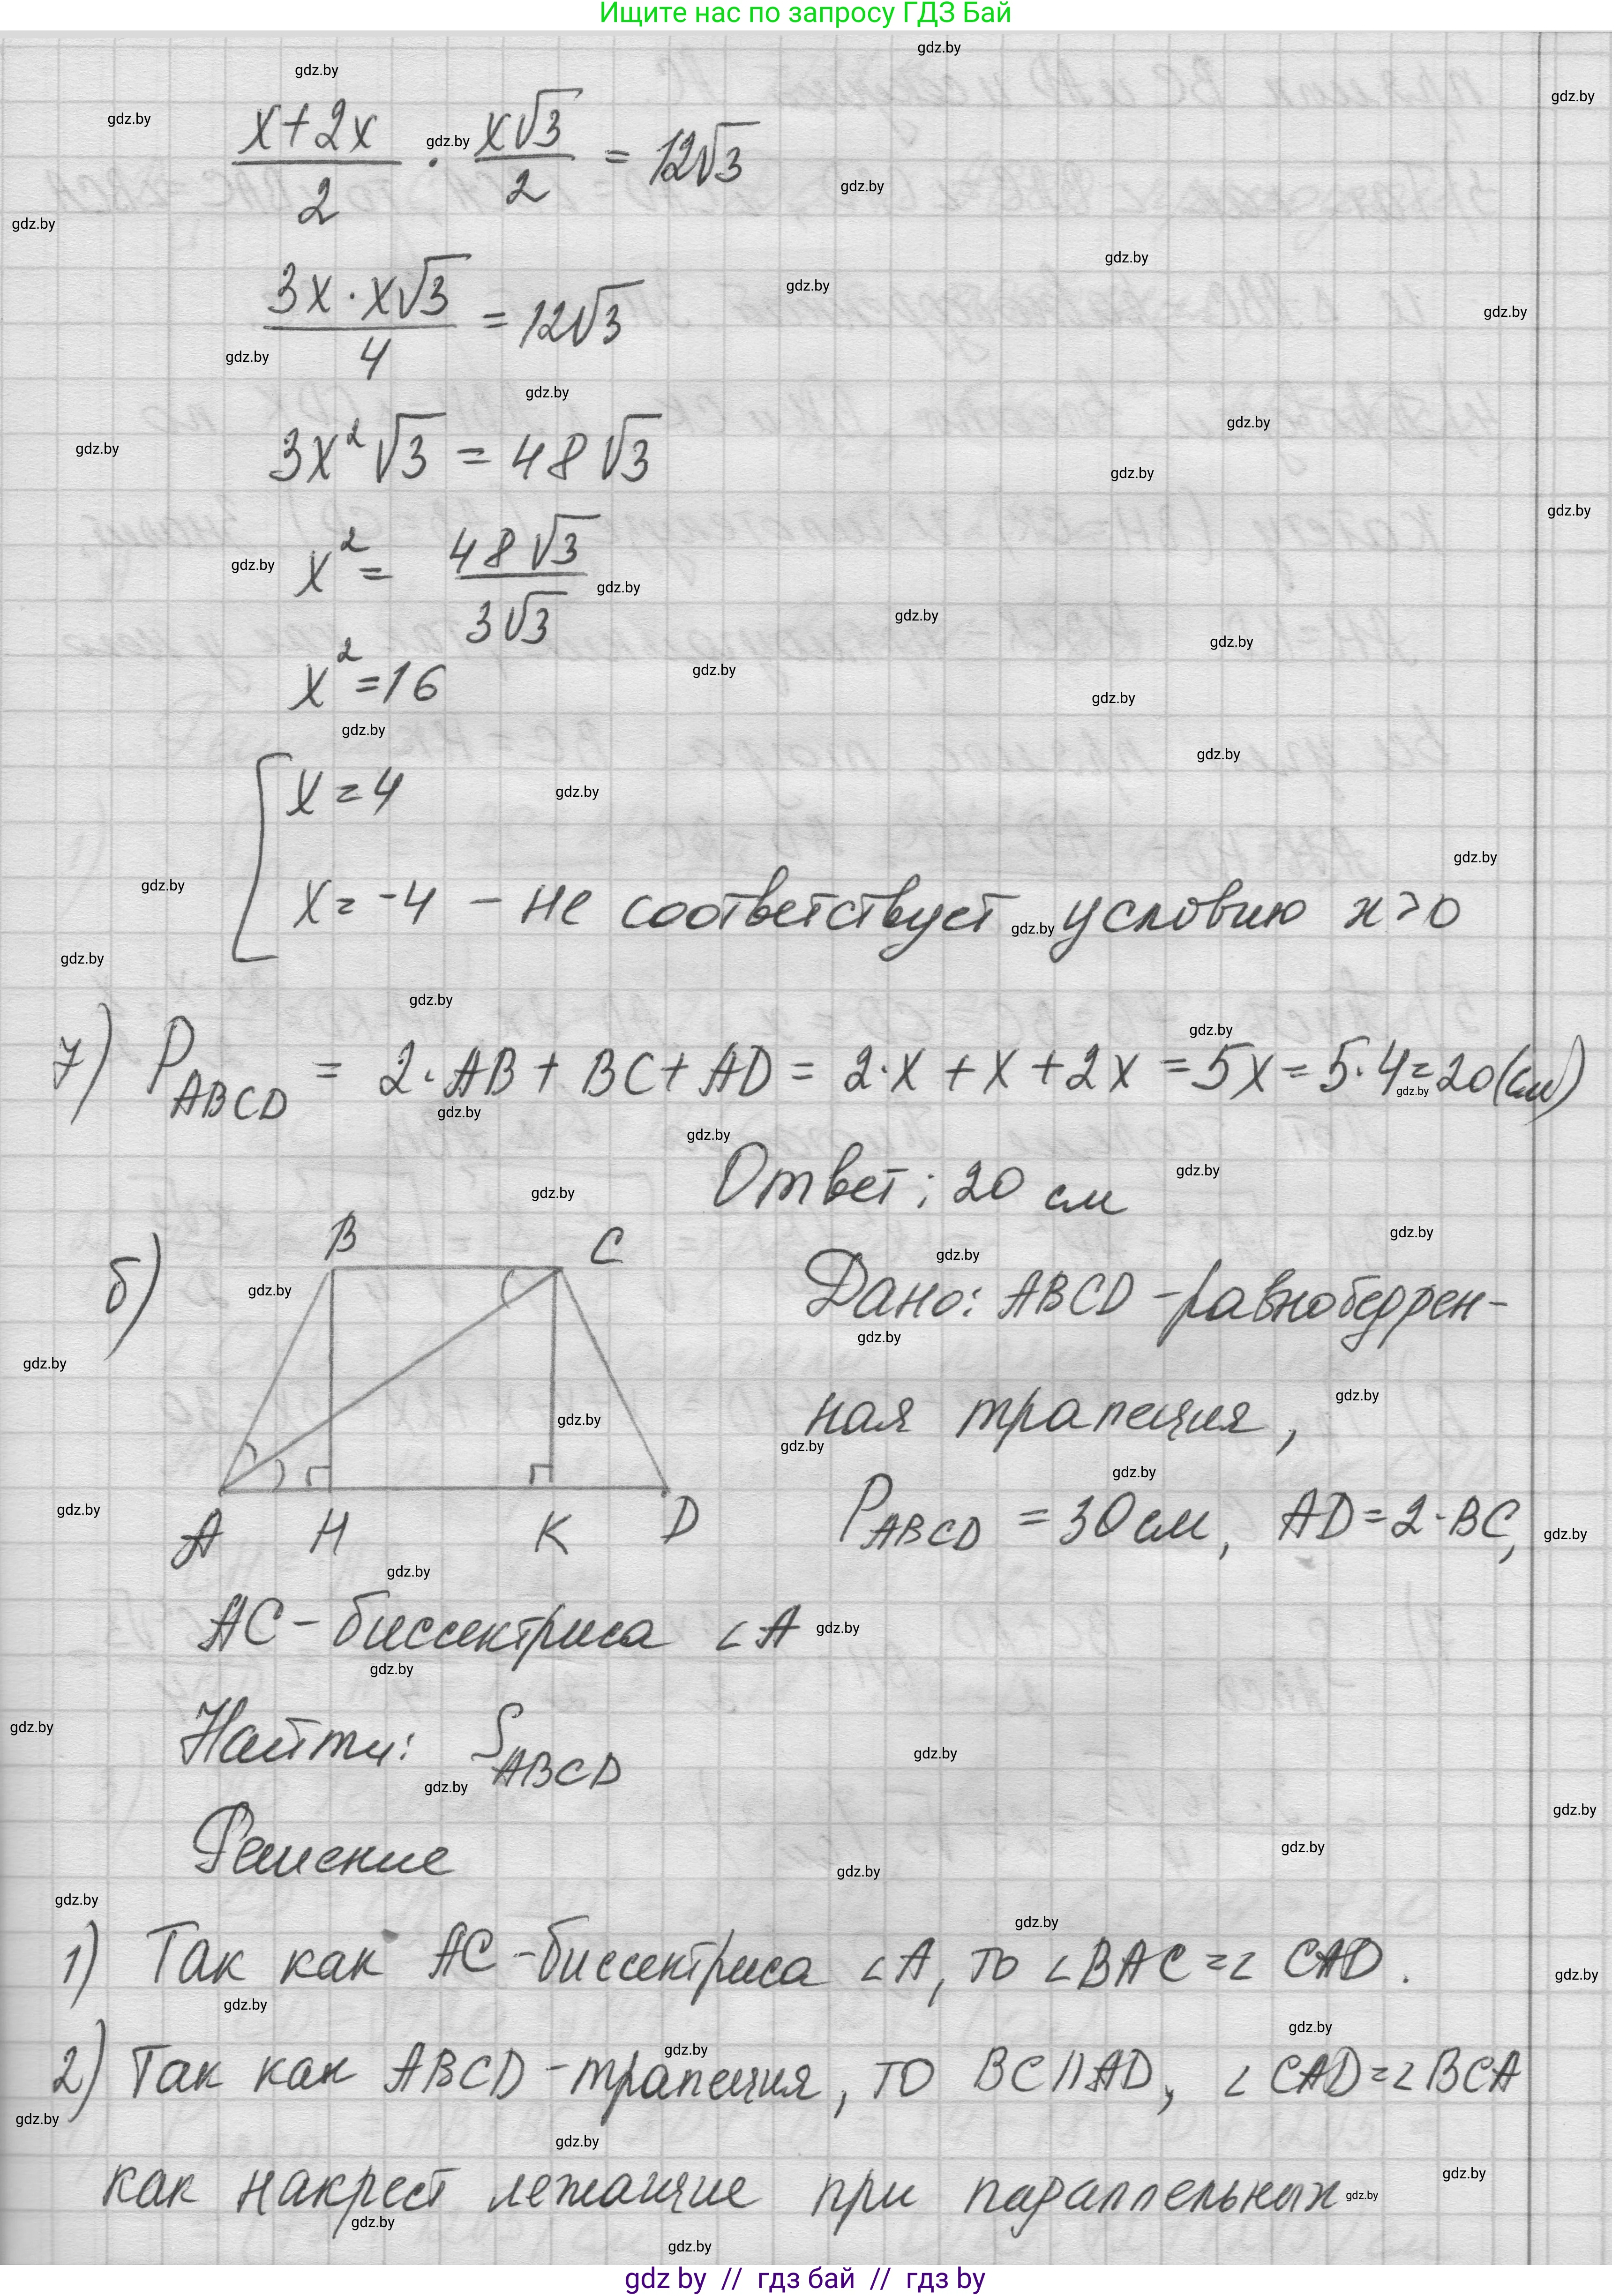 Ищите нас по запросу ГДЗ Бай
(x+2x)/2 · (x√3)/2 = 12√3
(3x · x√3)/4 = 12√3
3x²√3 = 48√3
x² = (48√3)/(3√3)
x² = 16
[ x = 4
x = -4 – не соответствует условию x > 0
7) P ABCD = 2·AB + BC + AD = 2·x + x + 2x = 5x = 5·4 = 20 (см)
Ответ: 20 см
б)
B C
A H K D
Дано: ABCD – равнобедрен-
ная трапеция,
P ABCD = 30 см, AD = 2·BC,
AC – биссектриса ∠A
Найти: S ABCD
Решение
1) Так как AC – биссектриса ∠A, то ∠BAC = ∠CAD.
2) Так как ABCD – трапеция, то BC || AD, ∠CAD = ∠BCA
как накрест лежащие при параллельных
gdz by // гдз бай // гдз by